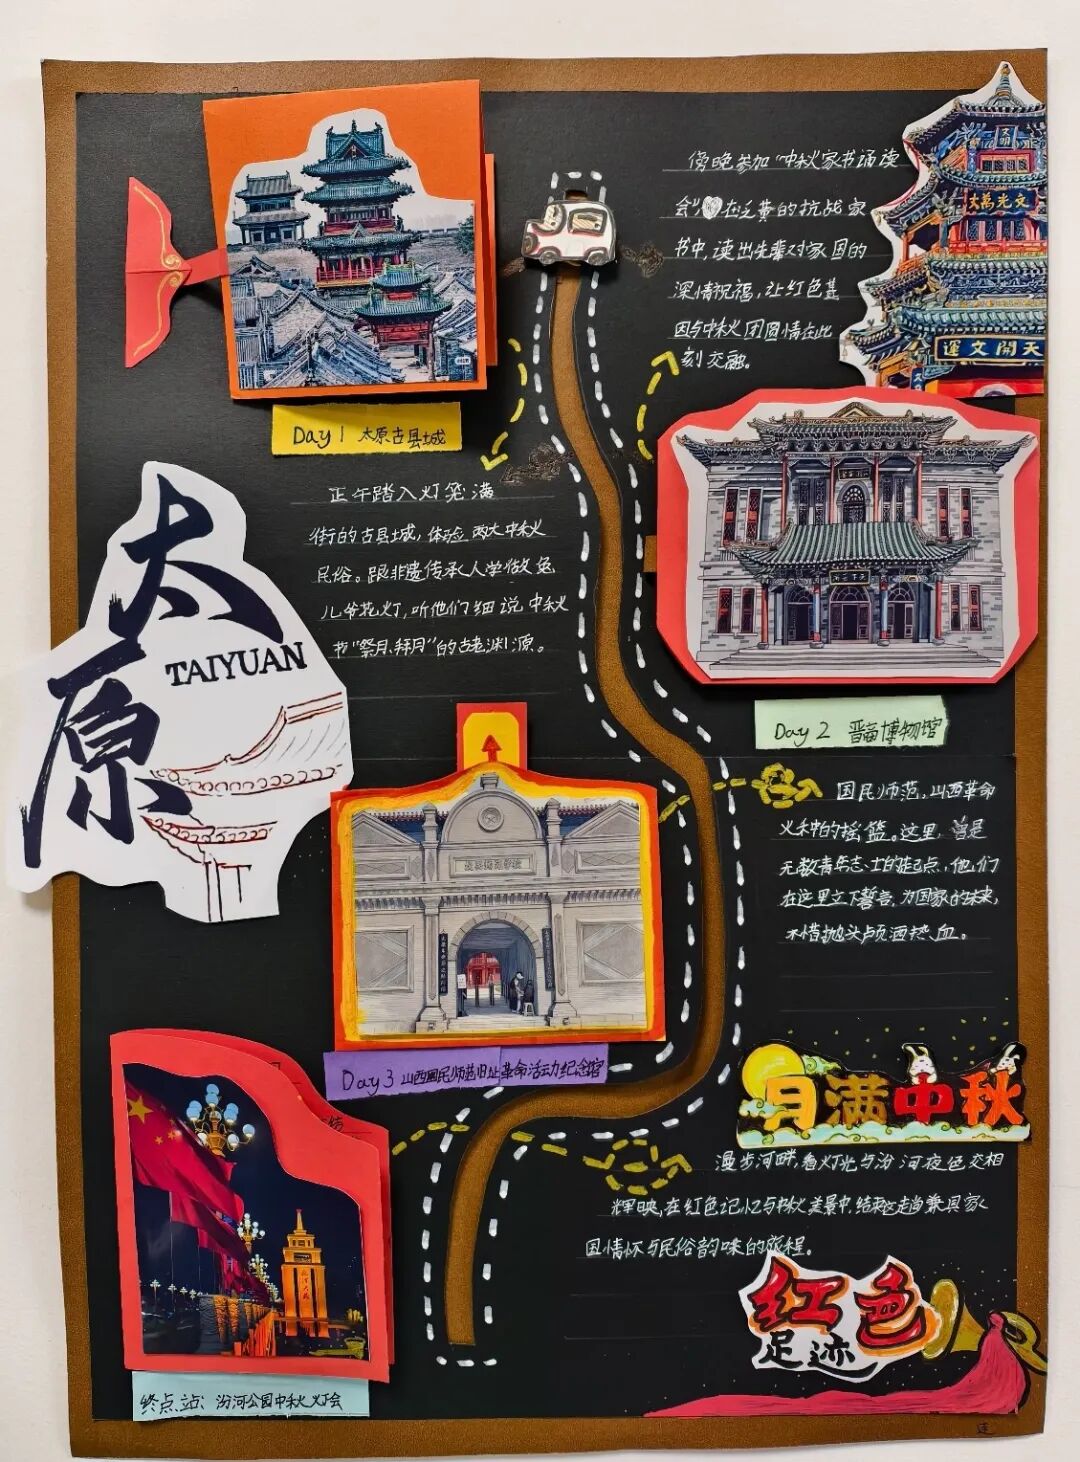 傍晚参加“中秋家书诵读
会”，在泛黄的抗战家
书中，读出先辈对家国的
深情祝福，让红色基
因与中秋团圆情在此
刻交融。
天开文運
Day 1 太原古县城
正午踏入灯笼满
街的古县城，体验两大中秋
民俗。跟非遗传承人学做兔
儿爷花灯，听他们细说中秋
节“祭月、拜月”的古老渊源。
太原
TAIYUAN
Day 2 晋商博物馆
国民师范，山西革命
火种的摇篮。这里，曾是
无数青年志士的起点，他们
在这里立下誓言，为国家的未来，
不惜抛头颅洒热血。
Day 3 山西国民师范旧址革命活动纪念馆
月满中秋
漫步河畔，看灯光与汾河夜色交相
辉映，在红色记忆与中秋美景中，结束这趟兼具家
国情怀与民俗韵味的旅程。
红色
足迹
终点站：汾河公园中秋灯会